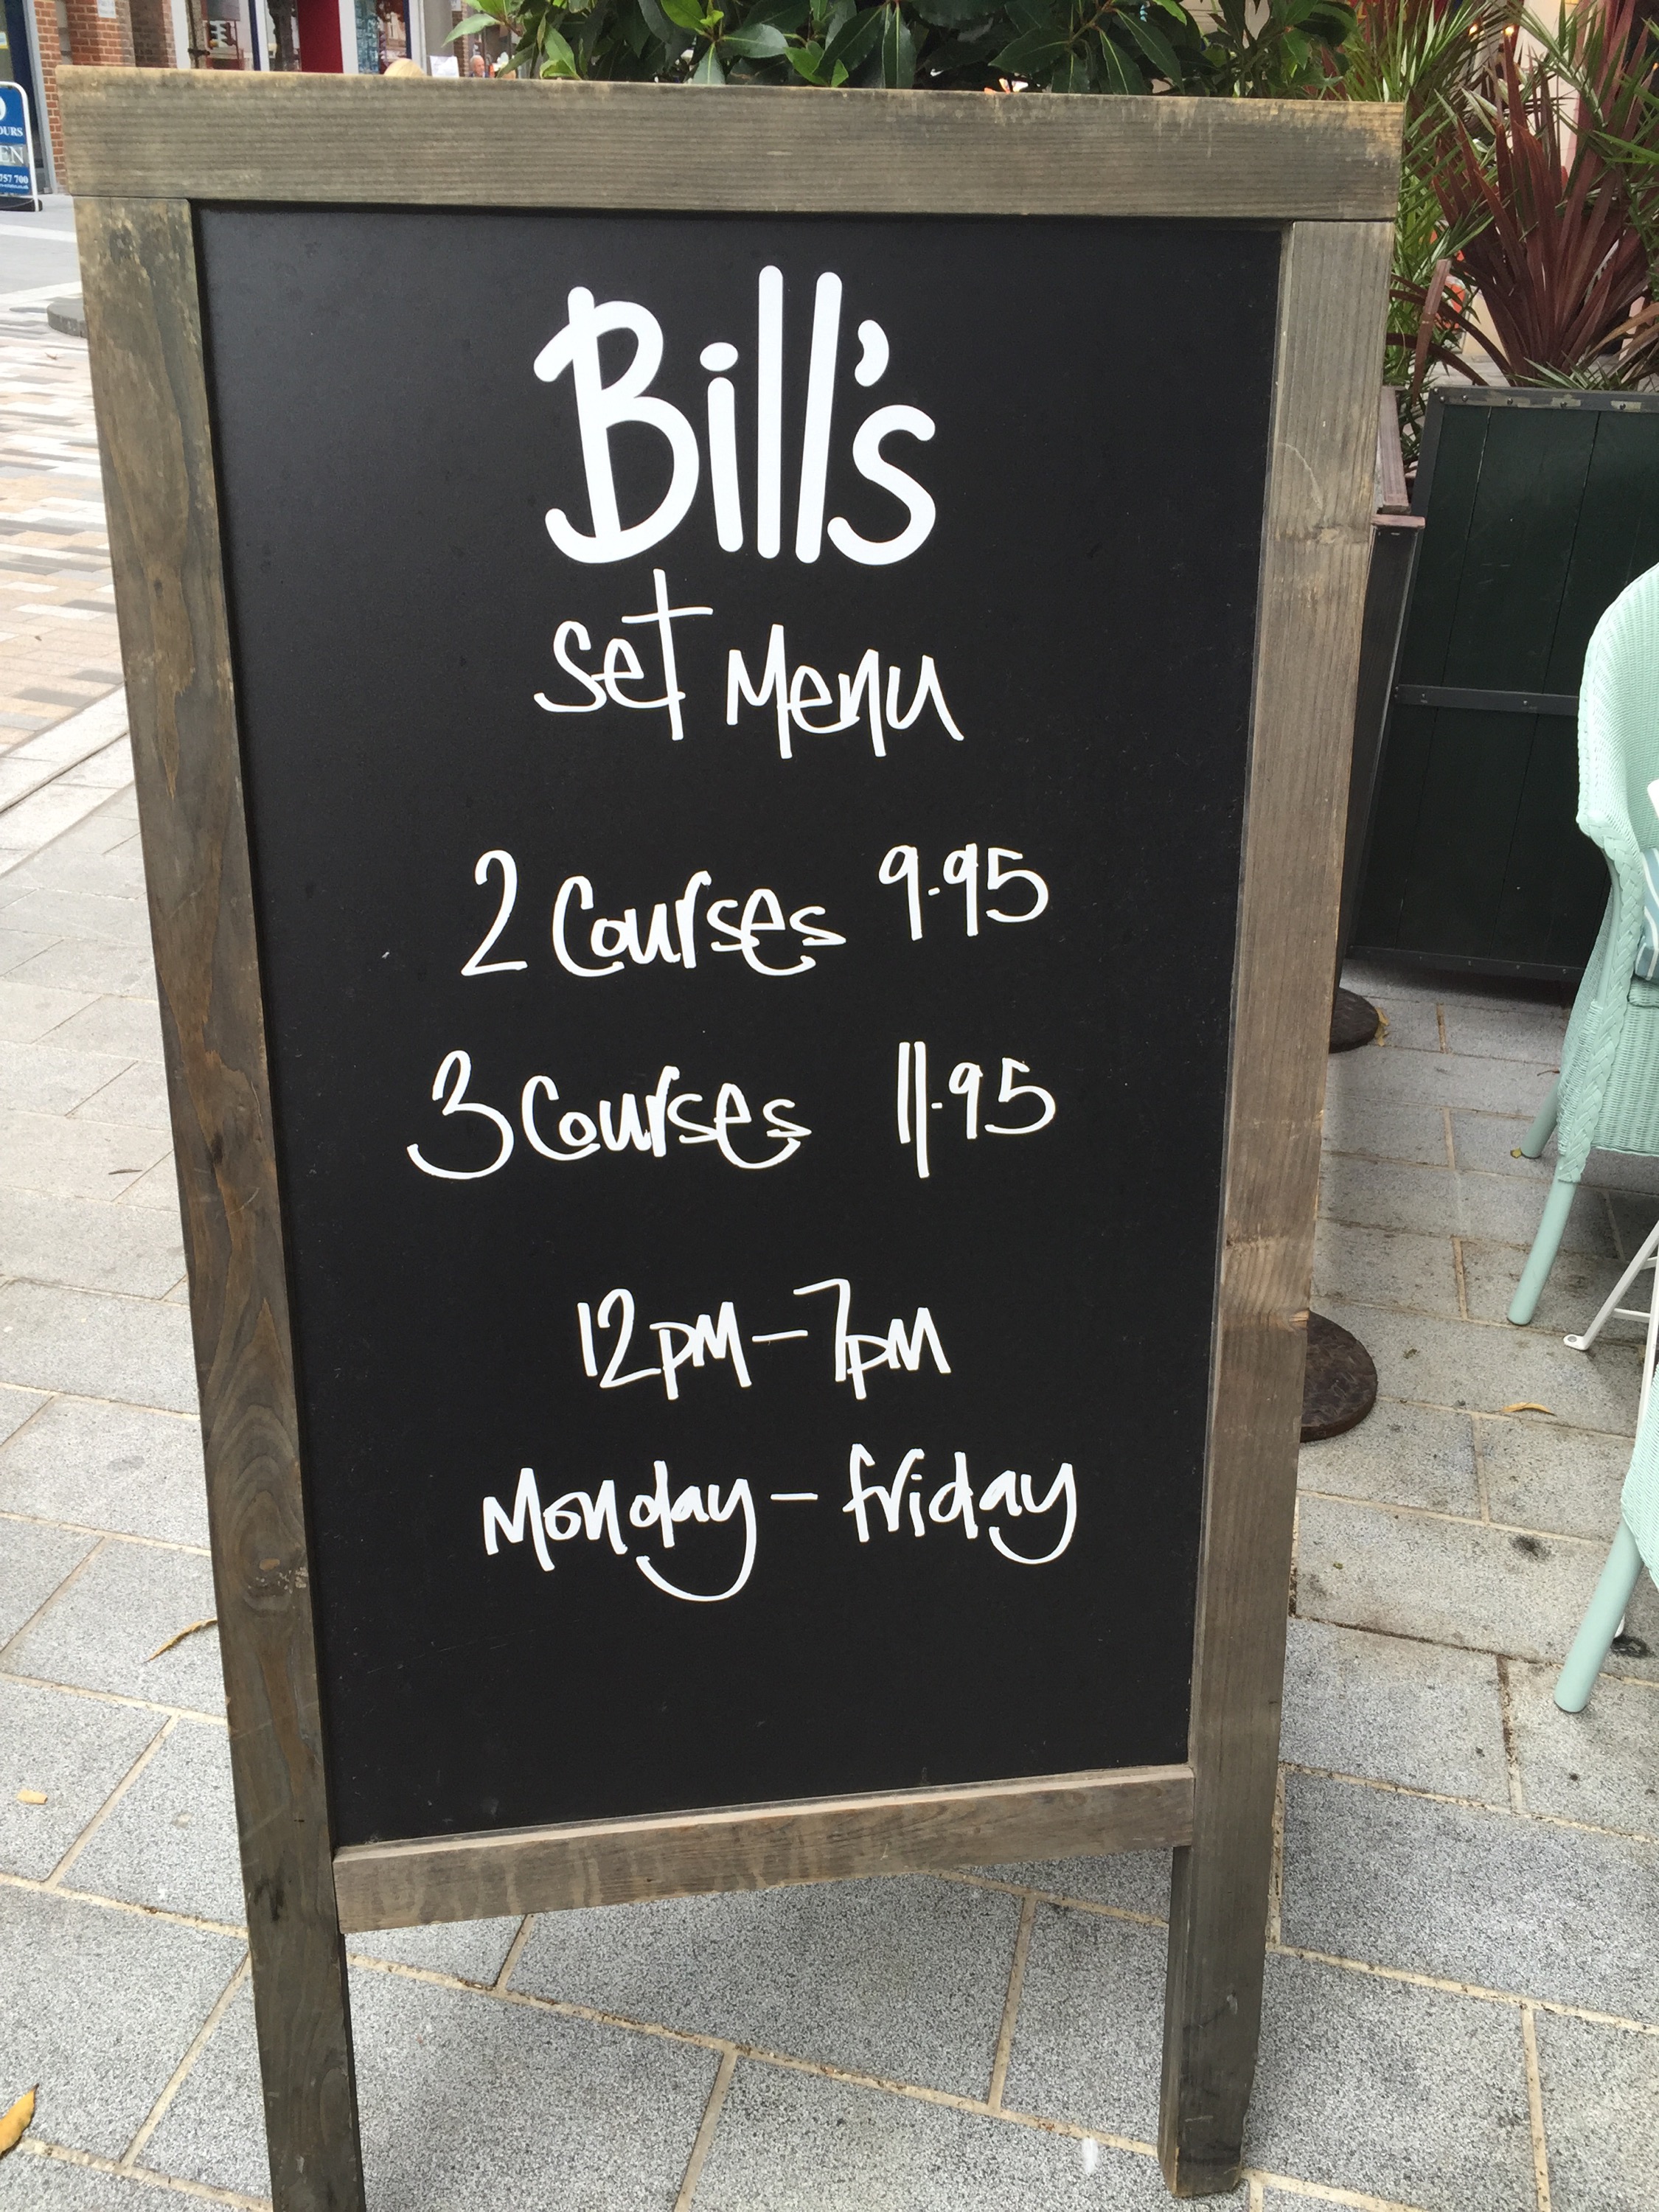 Bill's
set Menu
2 Courses 9.95
3 Courses 11.95
12pm - 7pm
Monday - friday
OURS
EN
757 700